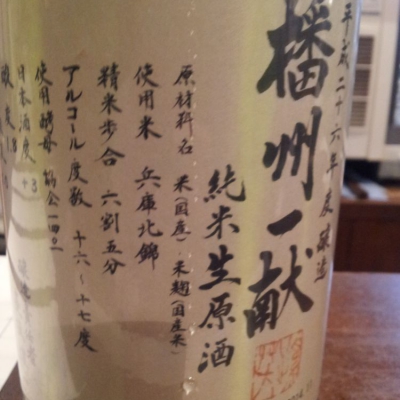 平成二十六年度醸造
播州一献
純米生原酒
原材料名 米(国産)・米麹(国産米)
使用米 兵庫北錦
精米歩合 六割五分
アルコール度数 十六~十七度
使用酵母 協会一四〇一
日本酒度 +3
酸度